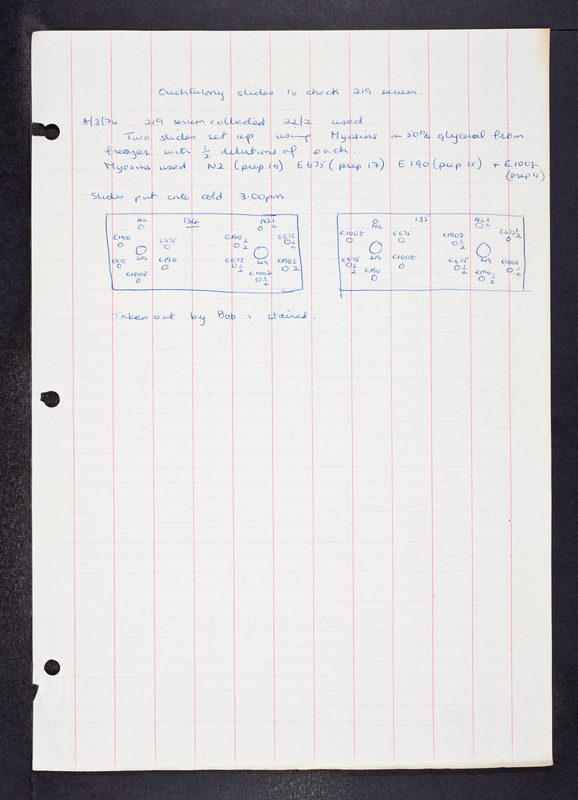 Ouchtulony slides to check 219 serum.
8/3/74 219 serum collected 22/2 used.
Two slides set up using Myosins in 50% glycerol from
freezer with 1/2 dilutions of each.
Myosins used N2 (prep 19) E675 (prep 17) E190 (prep 15) + E1008
(prep 9)
Slides put into cold 3.00pm
N2 134 N2 1/2
E190 E675 E190 1/2 E675 1/2
219 219
E675 E190 E675 1/2 E190 1/2
E1008 E1008 1/2
N2 135 N2 1/2
E1008 E675 E1008 1/2 E675 1/2
219 219
E675 1/2 E1008 E675 1/2 E1008 1/2
E190 E190 1/2
Taken out by Bob & stained.